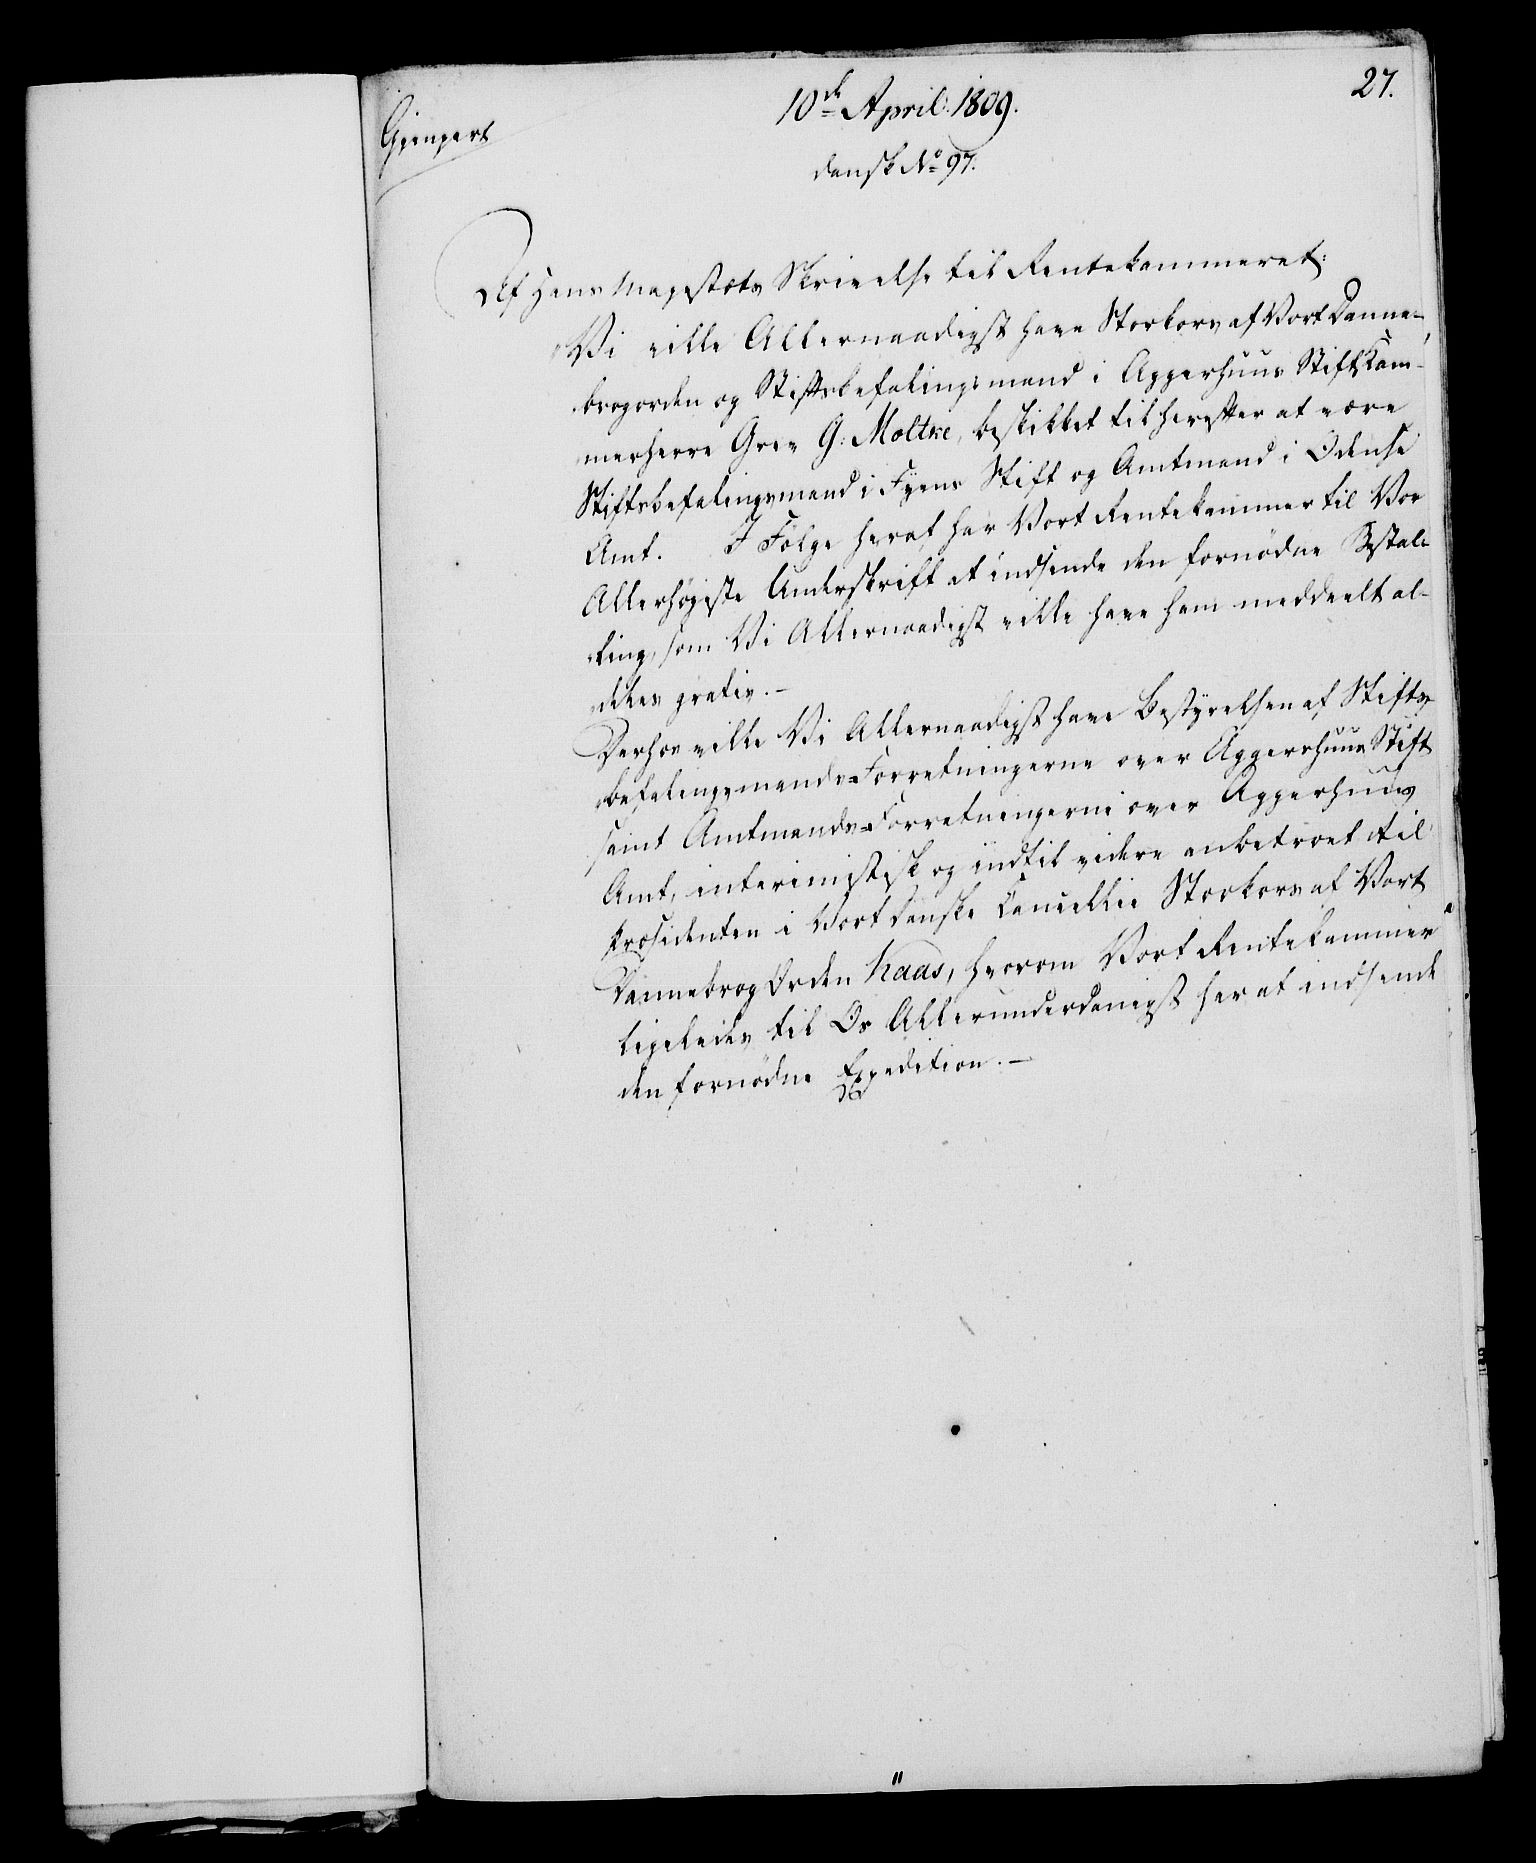 27.
10de April 1809.
Gienpart
dansk No 97.
Af Hans Majestæts Skrivelse til Rentekammeret:
Vi ville Allernaadigst have Storkors af Vort Danne-
brogorden og Stiftsbefalingsmand i Aggerhuus Stift, Kam-
merherre Grev G: Moltke, beskikket til herefter at være
Stiftsbefalingsmand i Fyens Stift og Amtmand i Odense
Amt. I Følge heraf har Vort Rentekammer til Vor
Allerhøjeste Underskrift at indsende den fornødne Bestal-
ling, som Vi Allernaadigst ville have ham meddeelt al-
deles gratis.-
Derhos ville Vi Allernaadigst have Bestyrelsen af Stifts-
befalingsmands-Forretningerne over Aggerhuus Stift
samt Amtmands-Forretningerne over Aggerhuus
Amt, interimistisk og indtil videre anbetroet til
Præsidenten i Vort danske Cancellie Storkors af Vort
Dannebrog Orden Kaas, hvorom Vort Rentekammer
ligeledes til Os Allerunderdanigst har at indsende
den fornødne Expedition.-